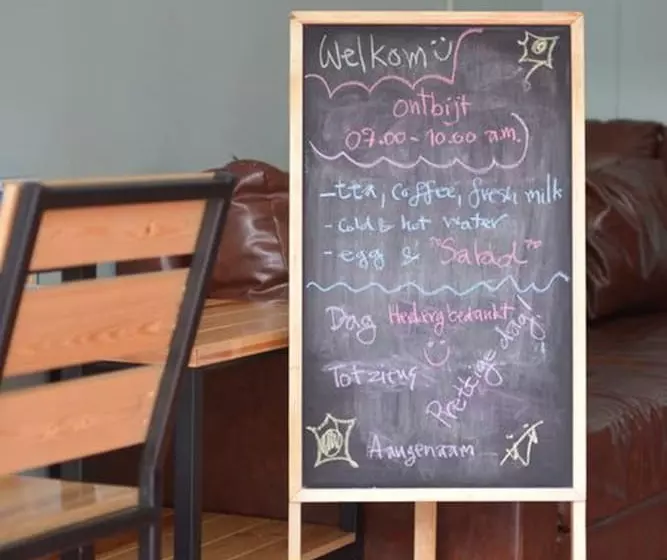 Welkom
ontbijt
07.00 - 10.00 a.m.
- tea, coffee, fresh milk
- cold & hot water
- egg & "Salad"
Dag Hartierg bedankt
Prettige dag!
Totziens
Aangenaam